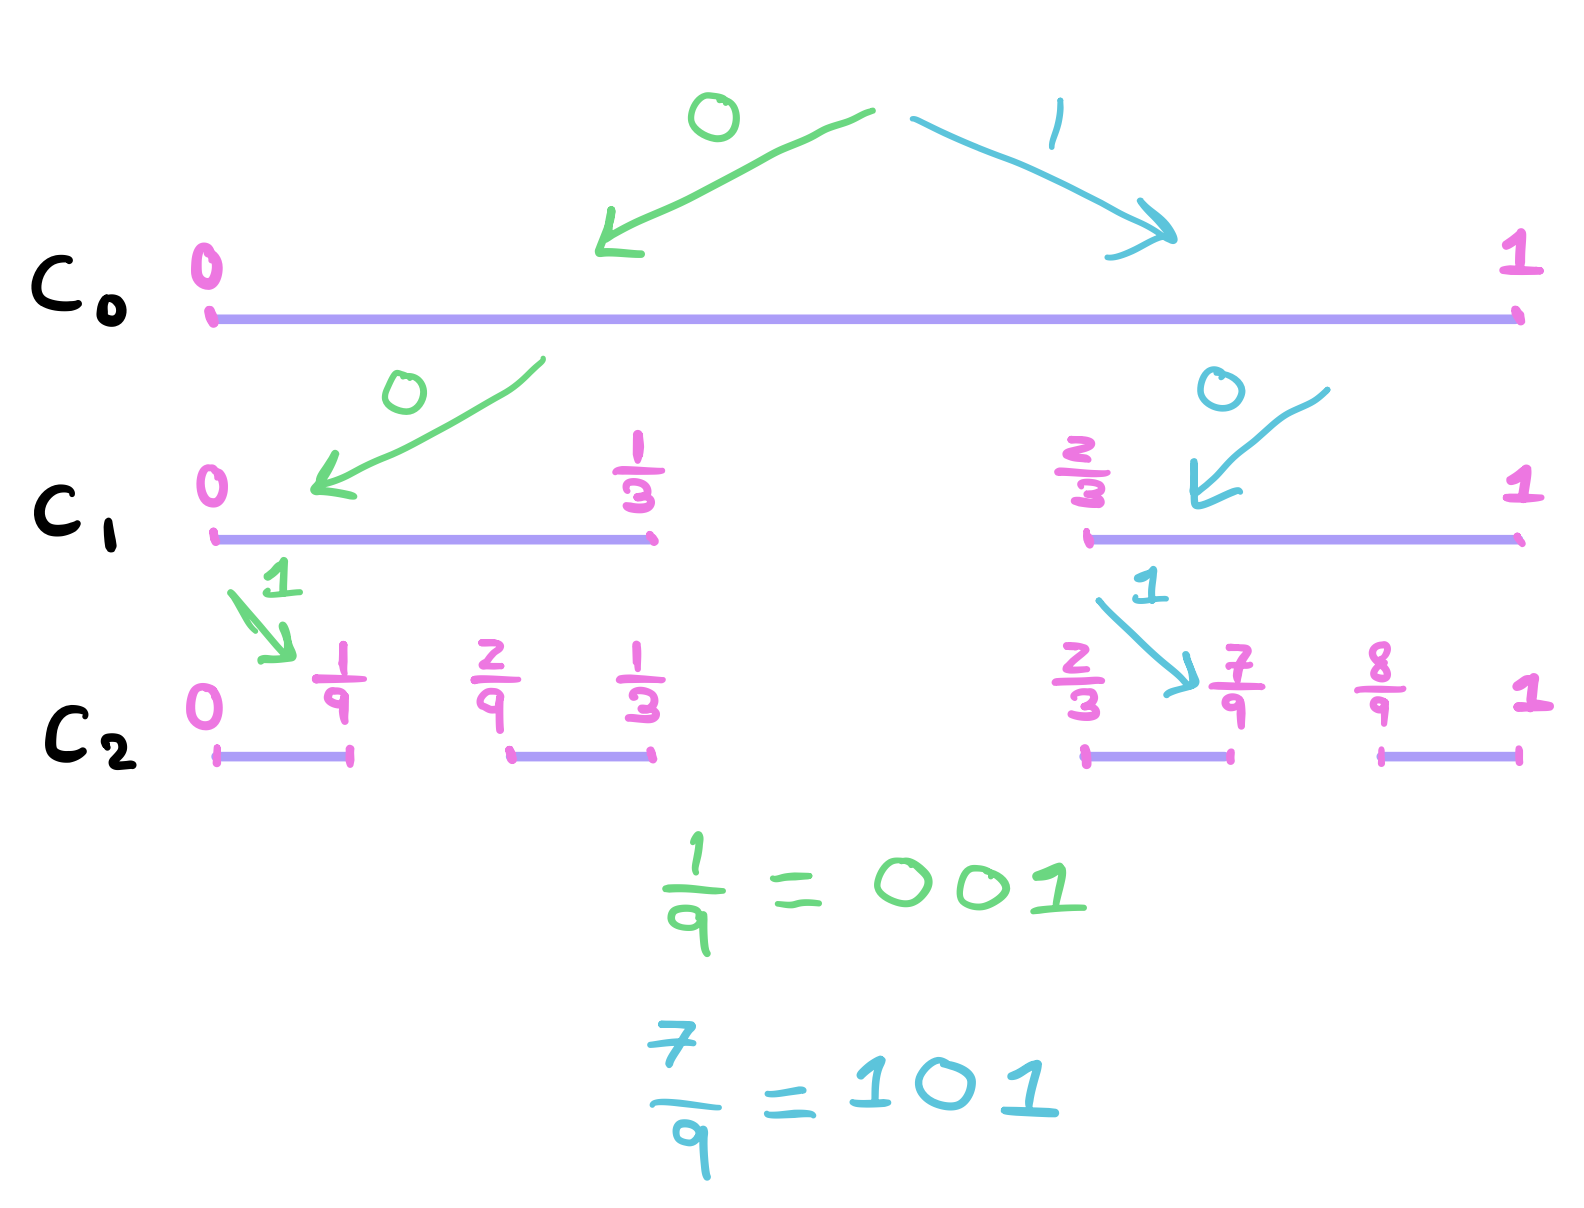 0 1
C0 0 1
0 0
C1 0 1/3 2/3 1
1 1
C2 0 1/9 2/9 1/3 2/3 7/9 8/9 1
1/9 = 001
7/9 = 101